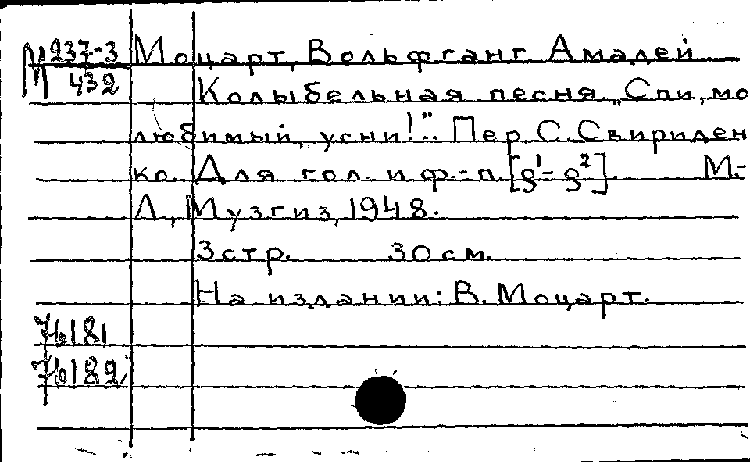 М 237-3 Моцарт, Вольфганг Амадей
432 Колыбельная песня „Спи, мо
любимый, усни!". Пер. С. Свириден
ко. Для гол. и ф.-п. [g¹- g²]. М.-
Л., Музгиз, 1948.
3 стр. 30 см.
На издании: В. Моцарт.
76181
76182